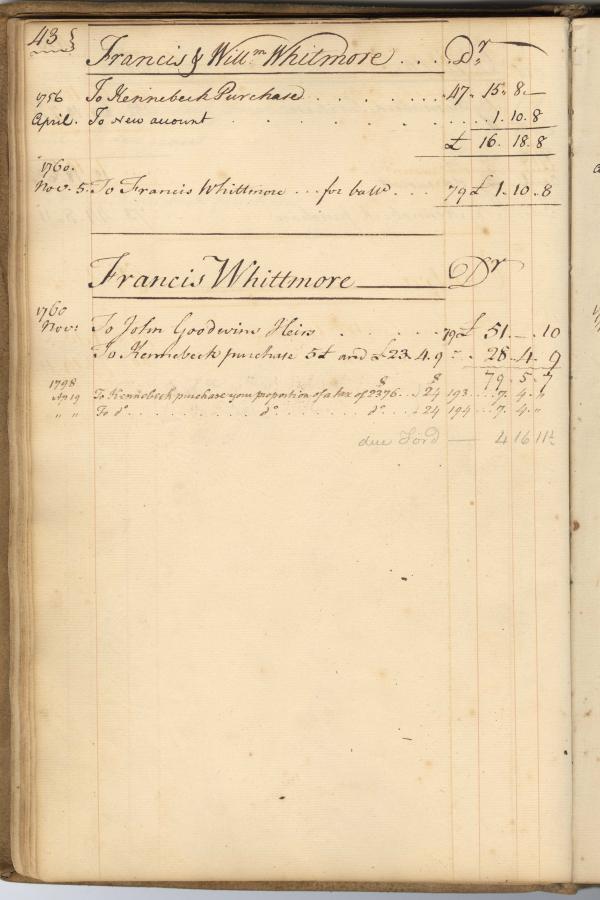 43
Francis & Willm Whitmore . . . Dr
1756 To Kennebeck Purchase . . . . . . 47. 15. 8. —
April. To New account . . . . . . . . . . 1. 10. 8
£ 16. 18. 8
1760.
Nov. 5. To Francis Whittmore ... for balle . . . 79 £ 1. 10. 8
Francis Whittmore Dr
1760
Novr To John Goodwins Heirs . . . . . . 79 £ 51. — . 10
To Kennebeck purchase 5£ and £23. 4. 9 28. 4. 9
79. 5. 7
1798 $ $
Ap 19 To Kennebeck purchase your proportion of a tax of 2376 . . . 24 193 . . . 7. 4. "
" " To do . . . . . . . . . . . do . . . . . . . . . do . . . 24 194 . . . 7. 4. "
due Ford — 4 16 11½